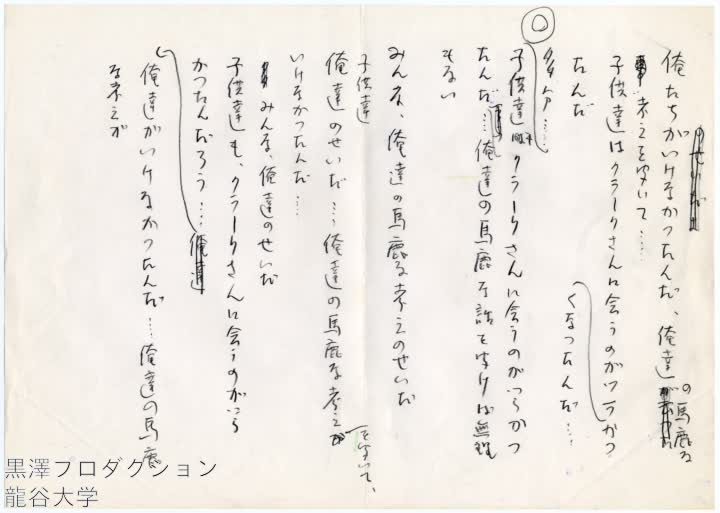 俺たちがいけなかったんだ、俺達の馬鹿な
のせいだ
考えをきいて……
子供達はクラークさんに会うのがツラかっ
たんだ
くなったんだ…
多分……
子供達はクラークさんに会うのがつらかっ
たんだ…俺達の馬鹿な話をきけば無理
もない
みんな、俺達の馬鹿な考えのせいだ
子供達
俺達のせいだ…俺達の馬鹿な考え
をきいて、
いけなかったんだ…
みんな、俺達のせいだ
子供達も、クラークさんに会うのがつら
かったんだろう…俺達
俺達がいけなかったんだ…俺達の馬鹿
な考えが
黒澤プロダクション
龍谷大学